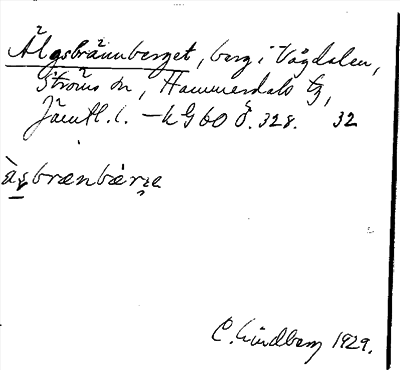 Älgsbrännberget, berg i Vågdalen,
Ströms sn, Hammerdals tg,
Jämtl. l. – kG 60 Ö. 328. 32
C. Lindberg 1929.